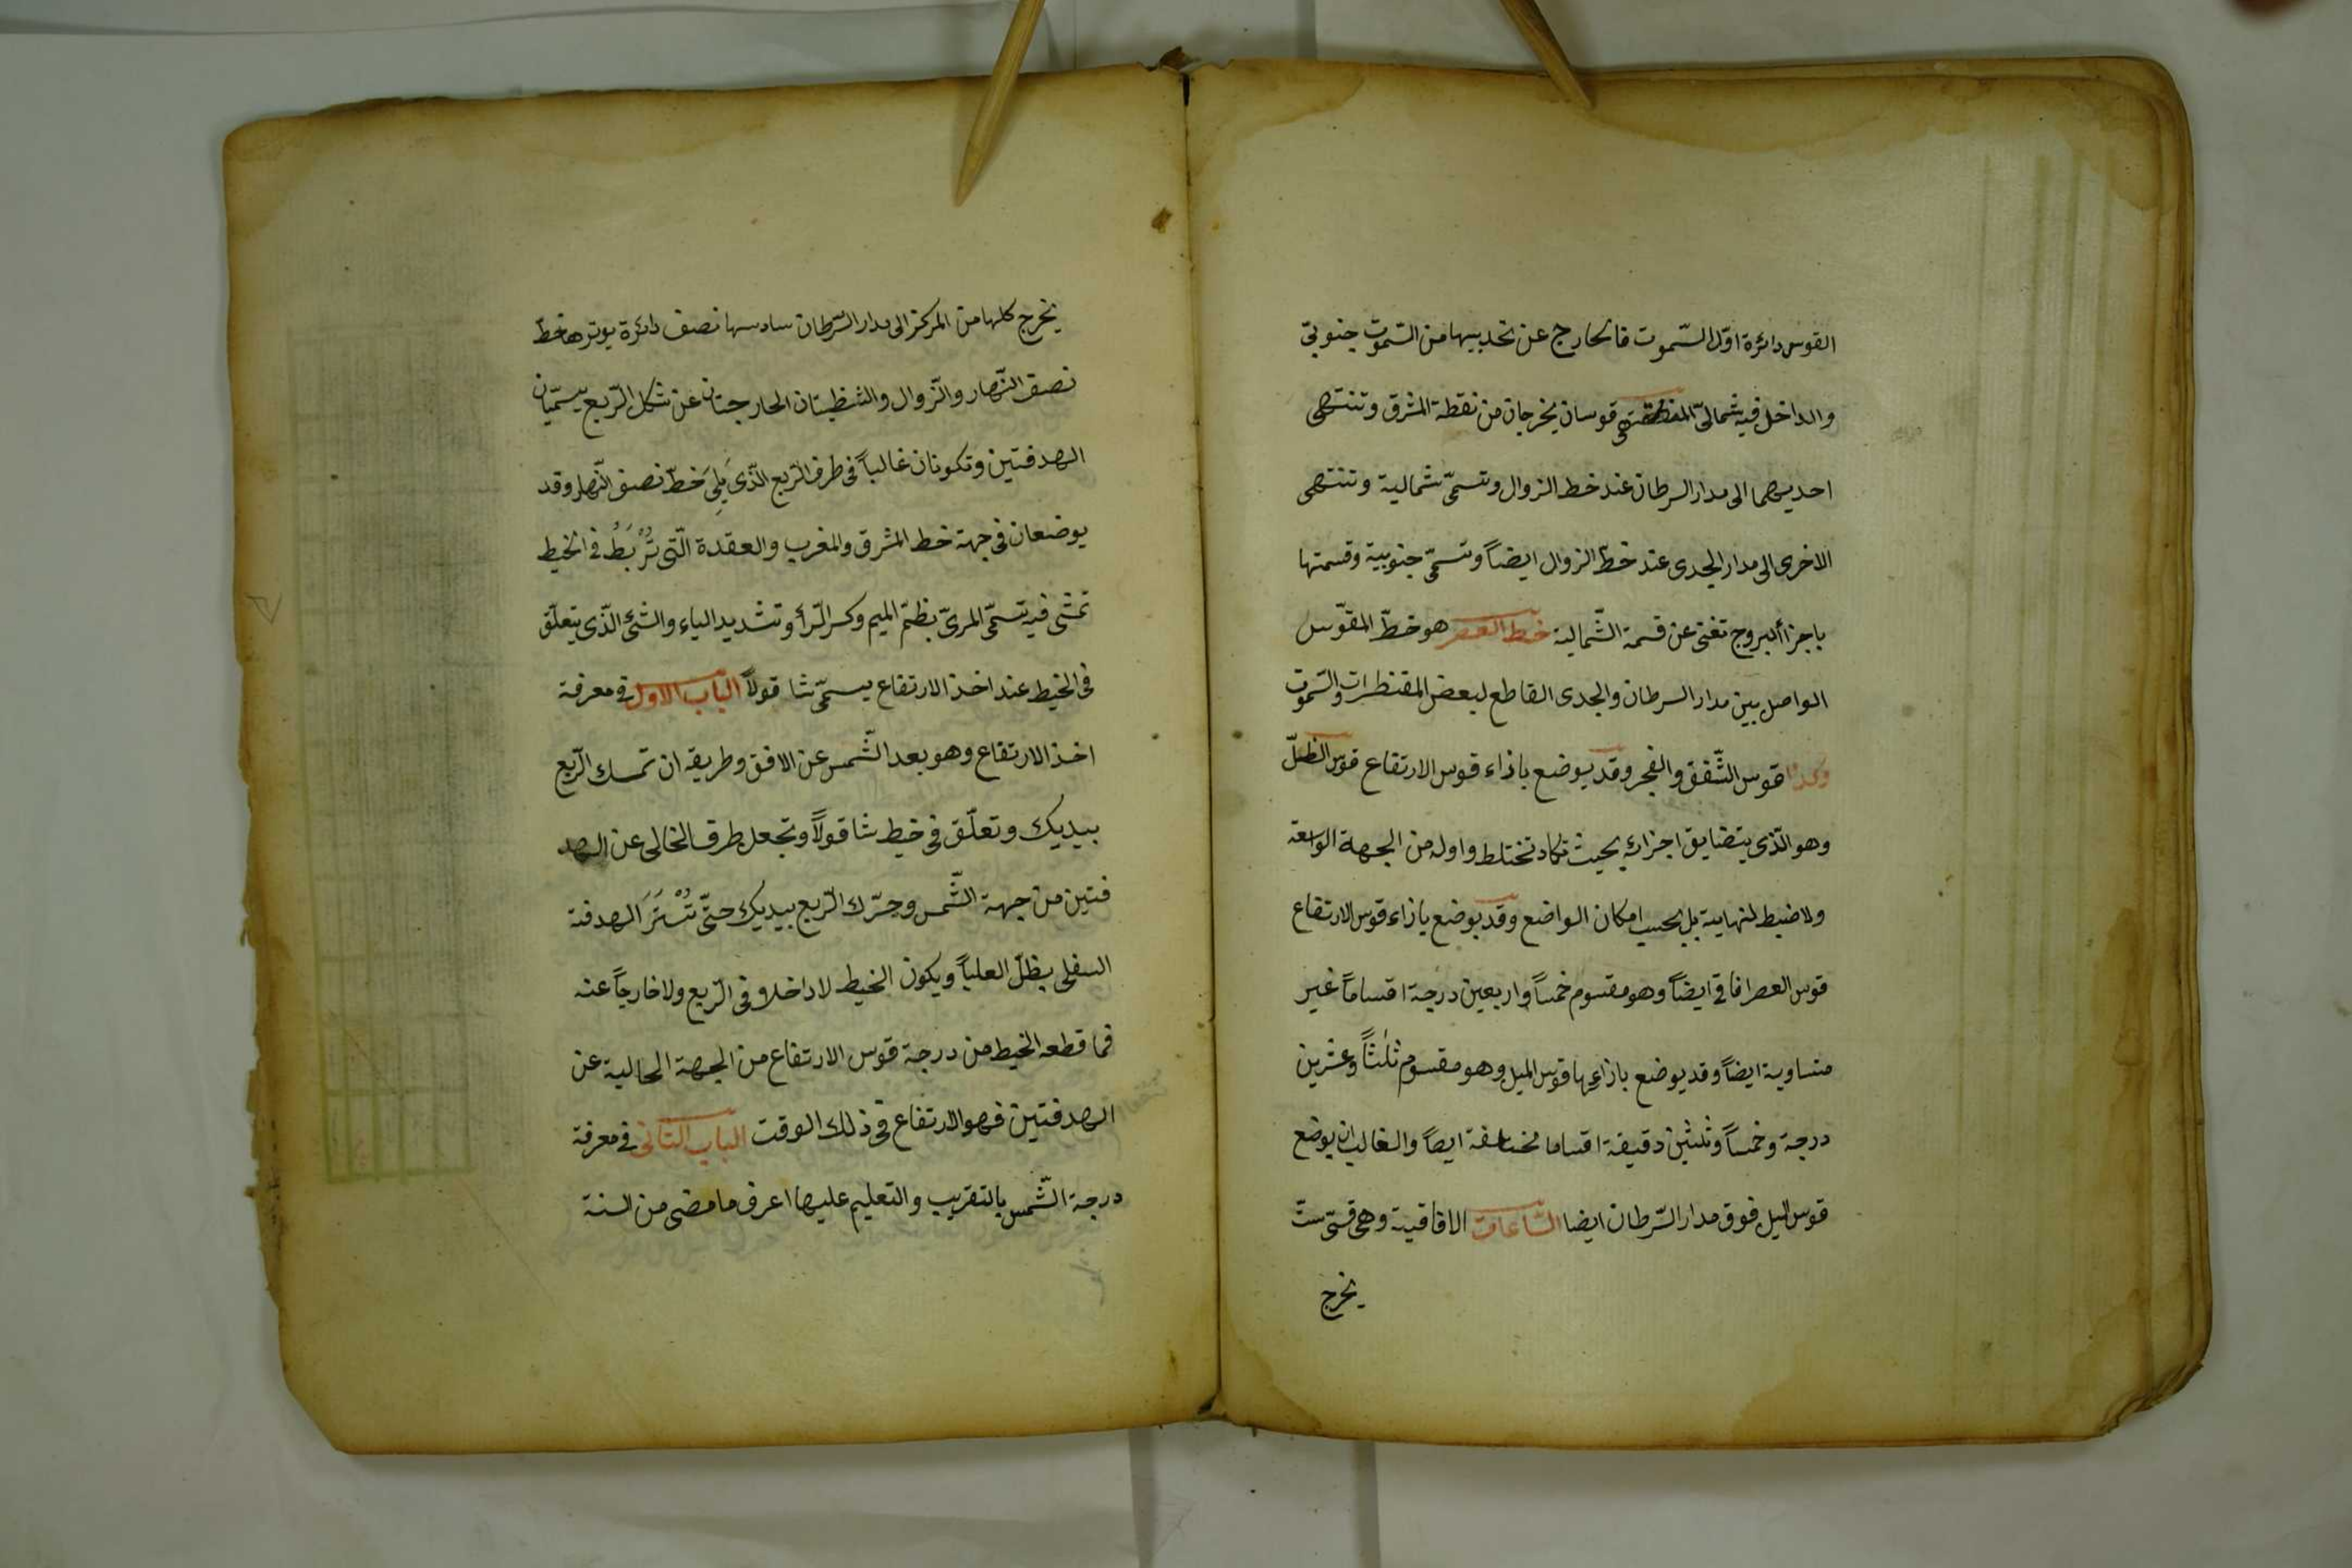 القوس دائرة اوّل السّموت فالخارج عن تحديبها من السّموت جنوبىّ
والداخل فيه شمالىّ المنطقة هى قوسان يخرجان من نقطة المشرق وتنتهى
احديهما الى مدار السرطان عند خط الزوال وتسمّى شمالية وتنتهى
الاخرى الى مدار الجدى عند خطّ الزوال ايضاً وتسمّى جنوبية وقسمتها
باجزاء البروج تغنى عن قسمة الشّمالية خط العصر هو خطّ المقوّس
الواصل بين مدار السرطان والجدى القاطع لبعض المقنطرات والسّموت
وكذا قوس الشّفق والفجر وقد يوضع بازاء قوس الارتفاع قوس الظلّ
وهو الّذى يتضايق اجزائه بحيث تكاد تختلط واوله من الجهة الواسعة
ولا ضبط لنهايته بل بحسب امكان الواضع وقد يوضع بازاء قوس الارتفاع
قوس العصر افاقى ايضاً وهو مقسوم خمساً واربعين درجة اقساماً غير
متساوية ايضاً وقد يوضع بازاءها قوس الميل وهو مقسوم ثلثاً وعشرين
درجة وخمساً وثلثين دقيقة اقساما مختلفة ايضاً والغالب ان يوضع
قوس الميل فوق مدار السّرطان ايضا السّاعات الافاقية وهى قسىّ ستّ
يخرج
يخرج كلها من المركز الى مدار السّرطان سادسها نصف دائرة يوترها خطّ
نصف النّهار والزّوال والشظيتان الخارجتان عن شكل الرّبع يسمّيان
الهدفتين وتكونان غالباً فى طرف الرّبع الّذى يَلِىَ خطّ نصف النّهار وقد
يوضعان فى جهة خط المشرق والمغرب والعقدة الّتى تُرْبَطُ فى الخيط
تمشى فيه تسمّى المرىّ بظمّ الميم وكسر الرّاء وتشديد الياء والشئ الّذى يتعلّق
فى الخيط عند اخذ الارتفاع يسمّى شاقولاً الباب الاول فى معرفة
اخذ الارتفاع وهو بعد الشّمس عن الافق وطريقه ان تمسك الرّبع
بيديك وتعلّق فى خيط شاقولاً وتجعل طرف الخالى عن الهد
فتين من جهة الشّمس وحرّك الرّبع بيديك حتّى تُسْتَرَ الهدفة
السفلى بظلّ العلياً ويكون الخيط لا داخلا فى الرّبع ولا خارجاً عنه
فما قطعه الخيط من درجة قوس الارتفاع من الجهة الخالية عن
الهدفتين فهو الارتفاع فى ذلك الوقت الباب الثانى فى معرفة
درجة الشّمس بالتقريب والتعليم عليها اعرف ما مضى من السنة